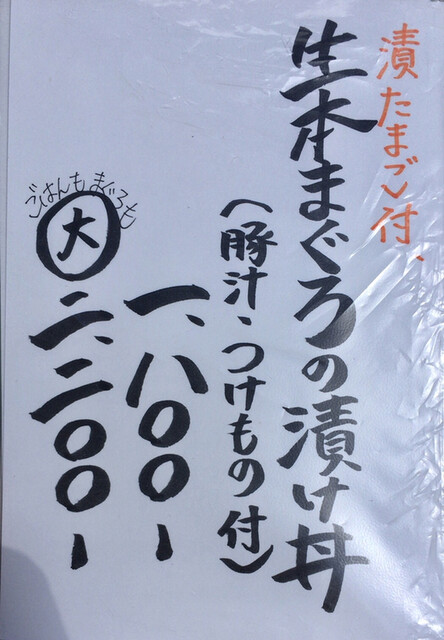 漬たまご付、
生本まぐろの漬け丼
(豚汁、つけもの付)
一、八〇〇-
ごはんもまぐろも
大 二、二〇〇-